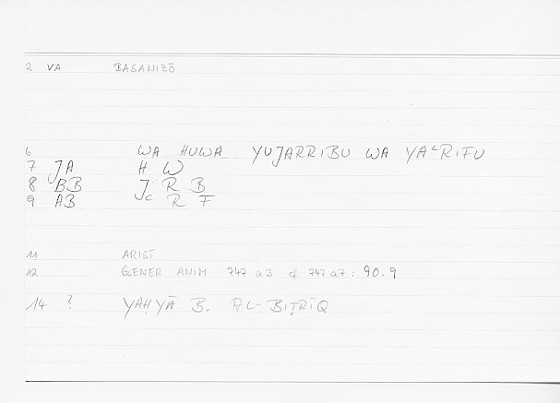 2 VA BASANIZŌ
6 WA HUWA YUJARRIBU WA YAᶜRIFU
7 JA H W
8 BB J R B
9 AB ᶜ R F
11 ARIST
12 GENER ANIM 747 a3 cf 747 a7: 90.9
14 ? YAḤYĀ B. AL-BIṬRĪQ